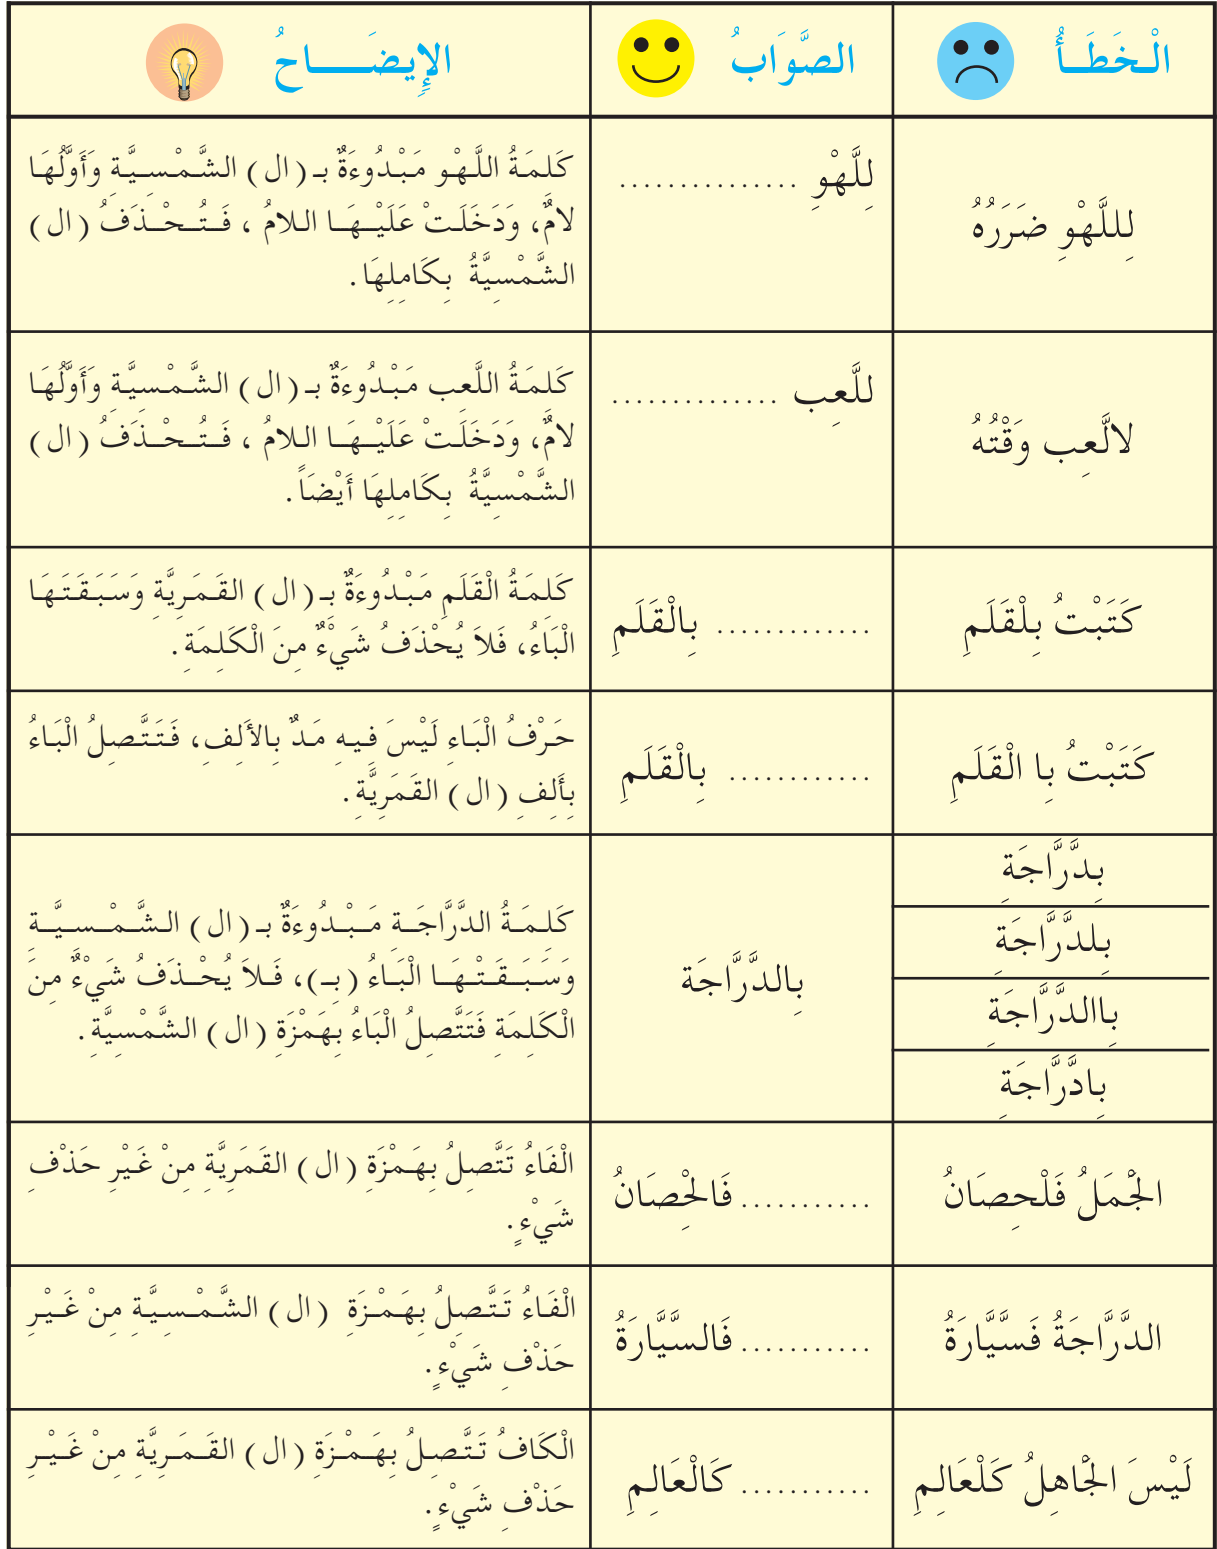 الْخَطَأُ
الصَّوَابُ
الإِيضَاحُ
لِللَّهْوِ ضَرَرُهُ
لِلَّهْوِ ...............
كَلِمَةُ اللَّهْوِ مَبْدُوءَةٌ بـ ( ال ) الشَّمْسِيَّةِ وَأَوَّلُهَا
لامٌ، وَدَخَلَتْ عَلَيْهَا اللامُ ، فَتُحْذَفُ ( ال )
الشَّمْسِيَّةُ بِكَامِلِهَا .
لالَّعِب وَقْتُهُ
للَّعِب ..............
كَلِمَةُ اللَّعِب مَبْدُوءَةٌ بـ ( ال ) الشَّمْسِيَّةِ وَأَوَّلُهَا
لامٌ، وَدَخَلَتْ عَلَيْهَا اللامُ ، فَتُحْذَفُ ( ال )
الشَّمْسِيَّةُ بِكَامِلِهَا أَيْضَاً .
كَتَبْتُ بِلْقَلَمِ
............. بِالْقَلَمِ
كَلِمَةُ الْقَلَمِ مَبْدُوءَةٌ بِـ ( ال ) القَمَرِيَّةِ وَسَبَقَتَهَا
الْبَاءُ، فَلاَ يُحْذَفُ شَيْءٌ مِنَ الْكَلِمَةِ .
كَتَبْتُ بِا الْقَلَمِ
............ بِالْقَلَمِ
حَرْفُ الْبَاءِ لَيْسَ فِيهِ مَدٌ بِالأَلِفِ، فَتَتَّصِلُ الْبَاءُ
بِأَلِفِ ( ال ) القَمَرِيَّةِ .
بِدَّرَّاجَةِ
بِلدَّرَّاجَةِ
بِاالدَّرَّاجَةِ
بِادَّرَّاجَةِ
بِالدَّرَّاجَة
كَلِمَةُ الدَّرَّاجَةِ مَبْدُوءَةٌ بـ ( ال ) الشَّمْسِيَّةِ
وَسَبَقَتْهَا الْبَاءُ ( بِـ)، فَلاَ يُحْذَفُ شَيْءٌ مِنَ
الْكَلِمَةِ فَتَتَّصِلُ الْبَاءُ بِهَمْزَةِ ( ال ) الشَّمْسِيَّةِ .
الْجَمَلُ فَلْحِصَانُ
........... فَالْحِصَانُ
الْفَاءُ تَتَّصِلُ بِهَمْزَةِ ( ال ) القَمَرِيَّةِ مِنْ غَيْرِ حَذْفِ
شَيْءٍ.
الدَّرَّاجَةُ فَسَّيَّارَةُ
........... فَالسَّيَّارَةُ
الْفَاءُ تَتَّصِلُ بِهَمْزَةِ ( ال ) الشَّمْسِيَّةِ مِنْ غَيْرِ
حَذْفِ شَيْءٍ.
لَيْسَ الْجَاهِلُ كَلْعَالِمِ
........... كَالْعَالِمِ
الْكَافُ تَتَّصِلُ بِهَمْزَةِ ( ال ) القَمَرِيَّةِ مِنْ غَيْرِ
حَذْفِ شَيْءٍ.